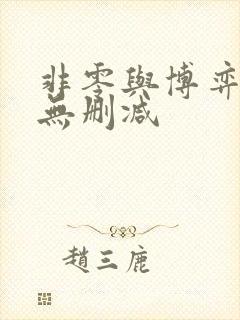 非零與博弈
無删减
趙三鹿